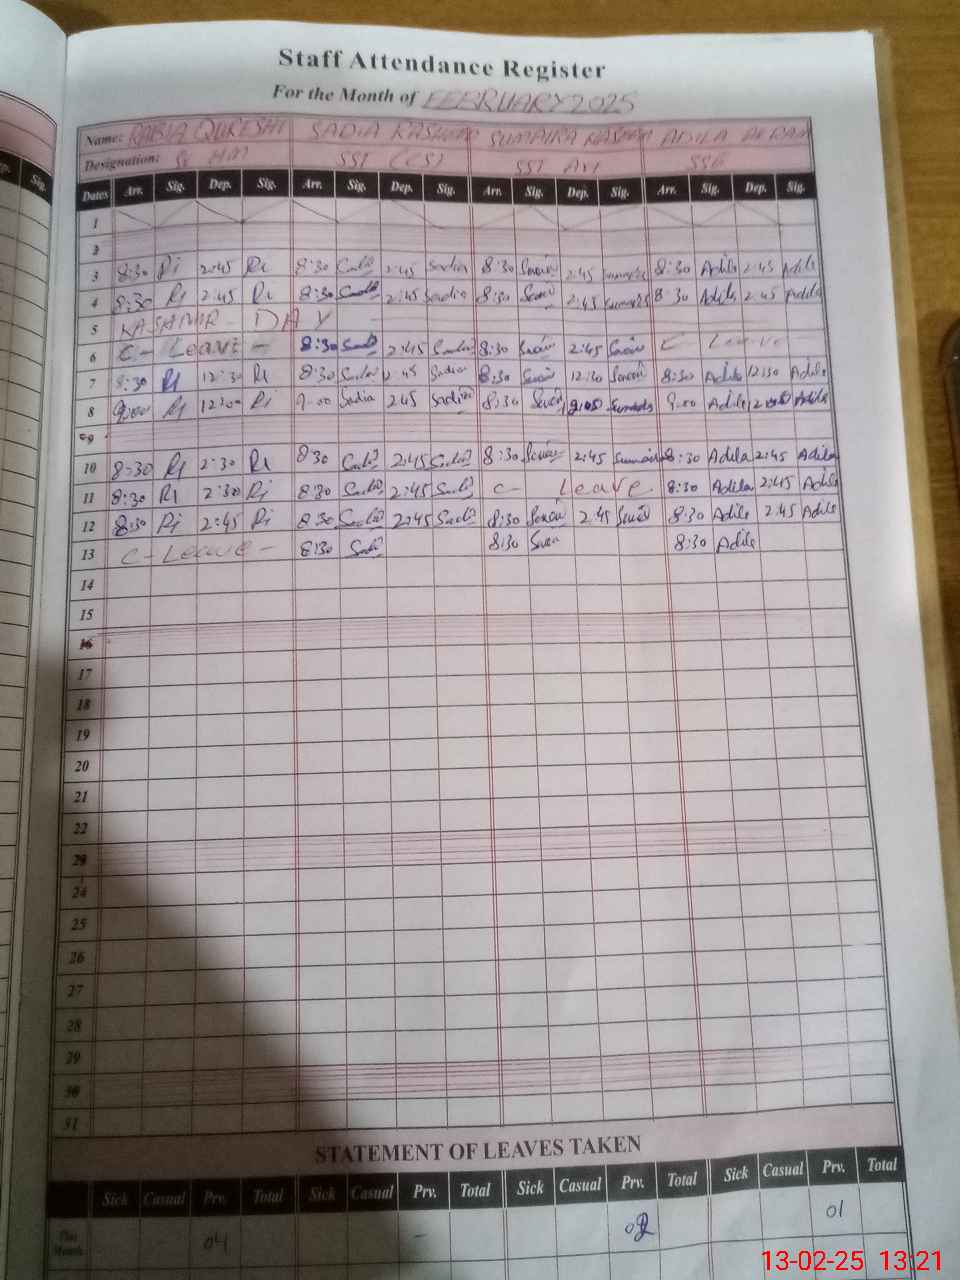 Staff Attendance Register
For the Month of FEBRUARY 2025
Name: RABIA QURESHI SADIA SUMAIRA ADILA AKRAM
Designation: HM SST (CS) SST Art
Dates Arr. Sig. Dep. Sig. Arr. Sig. Dep. Sig. Arr. Sig. Dep. Sig. Arr. Sig. Dep. Sig.
1
2
3 8:30 Ri 2:45 Ri 8:30 2:45 Sadia 8:30 2:45 8:30 Adila 2:45 Adila
4 8:30 Ri 2:45 Ri 8:30 2:45 Sadia 8:30 2:45 8:30 Adila 2:45 Adila
5 KASHMIR - DAY
6 C - Leave - 8:30 2:45 8:30 2:45 C Leave
7 8:30 Ri 12:30 Ri 8:30 Sadia 2:45 Sadia 8:30 12:30 8:30 Adila 12:30 Adila
8 9:00 Ri 12:00 Ri 9:00 Sadia 2:45 Sadia 8:30 9:00 Adila Adila
9
10 8:30 Ri 2:30 Ri 8:30 2:45 8:30 2:45 8:30 Adila 2:45 Adila
11 8:30 Ri 2:30 Ri 8:30 2:45 C - Leave 8:30 Adila 2:45 Adila
12 8:30 Ri 2:45 Ri 8:30 2:45 8:30 2:45 8:30 Adila 2:45 Adila
13 C - Leave - 8:30 8:30 8:30 Adila
14
15
16
17
18
19
20
21
22
23
24
25
26
27
28
29
30
31
STATEMENT OF LEAVES TAKEN
Sick Casual Prv. Total Sick Casual Prv. Total Sick Casual Prv. Total Sick Casual Prv. Total
This Month 04 - 02 01
13-02-25 13:21